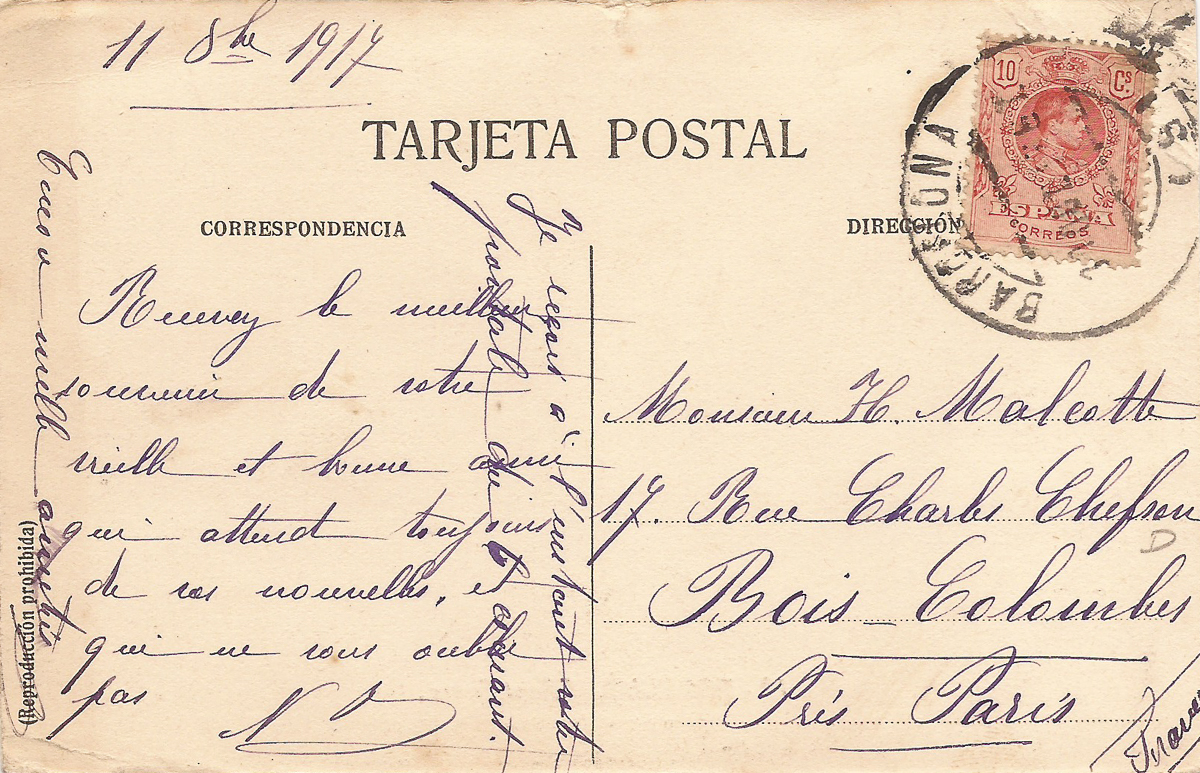 11 8bre 1917
TARJETA POSTAL
CORRESPONDENCIA
DIRECCIÓN
10 Cs.
ESPAÑA
CORREOS
BARCELONA
Recevez le meilleur
souvenir de votre
vieille et bonne amie
qui attend toujours
de vos nouvelles, et
qui ne vous oublie
pas
Je reçois à l'instant votre
postale du et dessant.
mille amitiés
(Reproducción prohibida)
Monsieur H. Malcotte
17. Rue Charles Chefson
Bois-Colombes
Près Paris
D